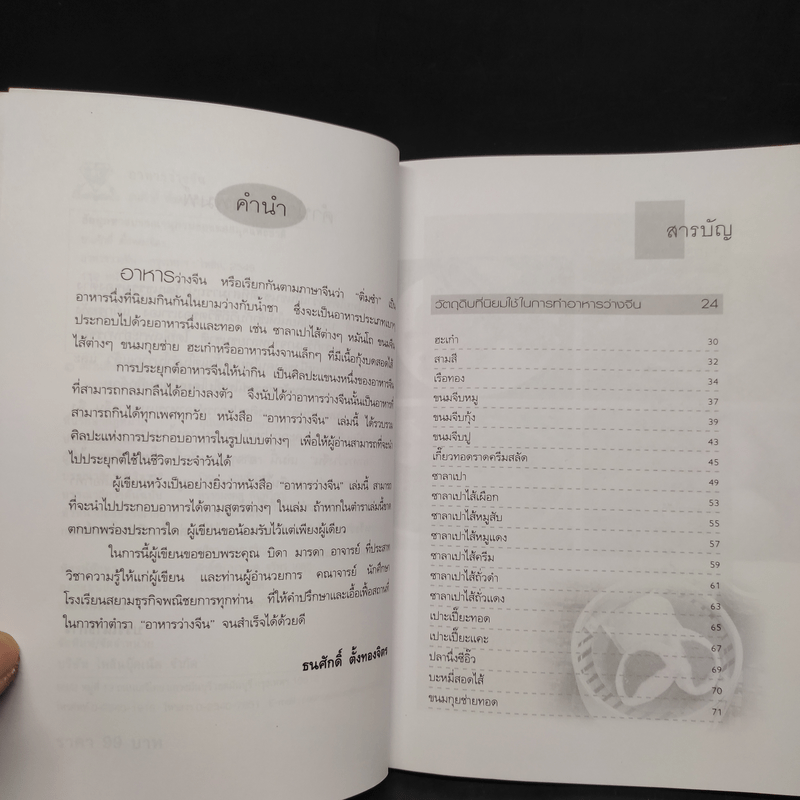 คำนำ
อาหารว่างจีน หรือเรียกกันตามภาษาจีนว่า "ติ่มซำ" เป็น
อาหารนึ่งที่นิยมกินกันในยามว่างกับน้ำชา ซึ่งจะเป็นอาหารประเภทเบาๆ
ประกอบไปด้วยอาหารนึ่งและทอด เช่น ซาลาเปาไส้ต่างๆ หมันโถ ขนมจีบ
ไส้ต่างๆ ขนมกุยช่าย ฮะเก๋าหรืออาหารนึ่งจานเล็กๆ ที่มีเนื้อกุ้งบดสอดไส้
การประยุกต์อาหารจีนให้น่ากิน เป็นศิลปะแขนงหนึ่งของอาหารจีน
ที่สามารถกลมกลืนได้อย่างลงตัว จึงนับได้ว่าอาหารว่างจีนนั้นเป็นอาหารที่
สามารถกินได้ทุกเพศทุกวัย หนังสือ "อาหารว่างจีน" เล่มนี้ ได้รวบรวม
ศิลปะแห่งการประกอบอาหารในรูปแบบต่างๆ เพื่อให้ผู้อ่านสามารถที่จะนำ
ไปประยุกต์ใช้ในชีวิตประจำวันได้
ผู้เขียนหวังเป็นอย่างยิ่งว่าหนังสือ "อาหารว่างจีน" เล่มนี้ สามารถ
ที่จะนำไปประกอบอาหารได้ตามสูตรต่างๆ ในเล่ม ถ้าหากในตำราเล่มนี้ขาด
ตกบกพร่องประการใด ผู้เขียนขอน้อมรับไว้แต่เพียงผู้เดียว
ในการนี้ผู้เขียนขอขอบพระคุณ บิดา มารดา อาจารย์ ที่ประสาท
วิชาความรู้ให้แก่ผู้เขียน และท่านผู้อำนวยการ คณาจารย์ นักศึกษา
โรงเรียนสยามธุรกิจพณิชยการทุกท่าน ที่ให้คำปรึกษาและเอื้อเฟื้อสถานที่
ในการทำตำรา "อาหารว่างจีน" จนสำเร็จได้ด้วยดี
ธนศักดิ์ ตั้งทองจิตร
ราคา 99 บาท
สารบัญ
วัตถุดิบที่นิยมใช้ในการทำอาหารว่างจีน 24
ฮะเก๋า 30
สามสี 32
เรือทอง 34
ขนมจีบหมู 37
ขนมจีบกุ้ง 39
ขนมจีบปู 43
เกี๊ยวทอดราดครีมสลัด 45
ซาลาเปา 51
ซาลาเปาไส้เผือก 53
ซาลาเปาไส้หมูสับ 55
ซาลาเปาไส้หมูแดง 57
ซาลาเปาไส้ครีม 59
ซาลาเปาไส้ถั่วดำ 61
ซาลาเปาไส้ถั่วแดง 63
เปาะเปี๊ยะทอด 65
เปาะเปี๊ยะแคะ 67
ปลานึ่งซีอิ๊ว 69
บะหมี่สอดไส้ 70
ขนมกุยช่ายทอด 71